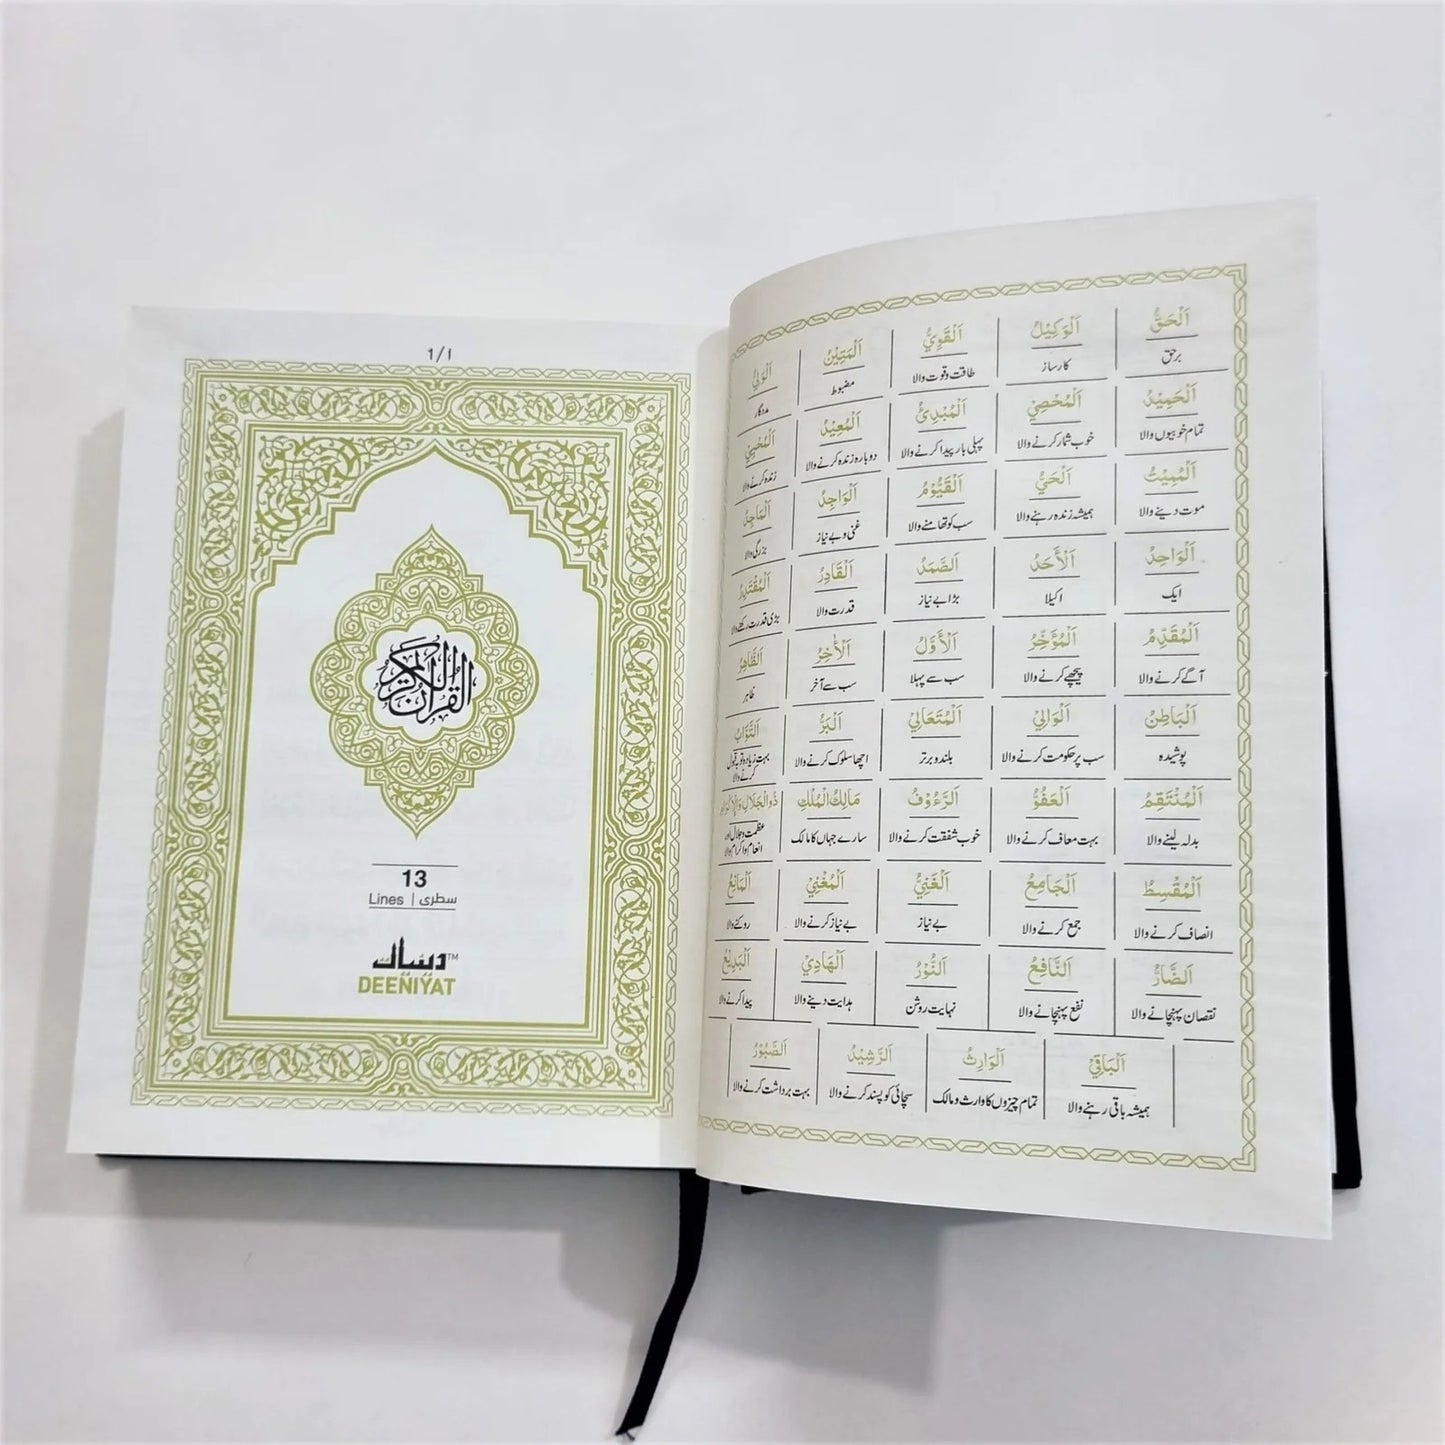 1/1
القرآن الكريم
13
Lines | سطری
دینیات™
DEENIYAT
اَلْحَقُّ اَلْوَكِيْلُ اَلْقَوِيُّ اَلْمَتِيْنُ اَلْوَلِيُّ
برحق کارساز طاقت وقوت والا مضبوط مددگار
اَلْحَمِيْدُ اَلْمُحْصِيْ اَلْمُبْدِئُ اَلْمُعِيْدُ اَلْمُحْيِيْ
تمام خوبیوں والا خوب شمار کرنے والا پہلی بار پیدا کرنے والا دوبارہ زندہ کرنے والا زندہ کرنے والا
اَلْمُمِيْتُ اَلْحَيُّ اَلْقَيُّوْمُ اَلْوَاجِدُ اَلْمَاجِدُ
موت دینے والا ہمیشہ زندہ رہنے والا سب کو تھامنے والا غنی و بے نیاز بزرگی والا
اَلْوَاحِدُ اَلْأَحَدُ اَلصَّمَدُ اَلْقَادِرُ اَلْمُقْتَدِرُ
ایک اکیلا بڑا بے نیاز قدرت والا بڑی قدرت رکھنے والا
اَلْمُقَدِّمُ اَلْمُؤَخِّرُ اَلْأَوَّلُ اَلْأٰخِرُ اَلظَّاهِرُ
آگے کرنے والا پیچھے کرنے والا سب سے پہلا سب سے آخر ظاہر
اَلْبَاطِنُ اَلْوَالِيْ اَلْمُتَعَالِيْ اَلْبَرُّ اَلتَّوَّابُ
پوشیدہ سب پر حکومت کرنے والا بلند و برتر اچھا سلوک کرنے والا بہت زیادہ توبہ قبول کرنے والا
اَلْمُنْتَقِمُ اَلْعَفُوُّ اَلرَّءُوْفُ مَالِكُ الْمُلْكِ ذُوالْجَلَالِ وَالْاِكْرَامِ
بدلہ لینے والا بہت معاف کرنے والا خوب شفقت کرنے والا سارے جہاں کا مالک عظمت و جلال اور انعام و اکرام والا
اَلْمُقْسِطُ اَلْجَامِعُ اَلْغَنِيُّ اَلْمُغْنِيْ اَلْمَانِعُ
انصاف کرنے والا جمع کرنے والا بے نیاز بے نیاز کرنے والا روکنے والا
اَلضَّارُّ اَلنَّافِعُ اَلنُّوْرُ اَلْهَادِيْ اَلْبَدِيْعُ
نقصان پہنچانے والا نفع پہنچانے والا نہایت روشن ہدایت دینے والا پیدا کرنے والا
اَلْبَاقِيْ اَلْوَارِثُ اَلرَّشِيْدُ اَلصَّبُوْرُ
ہمیشہ باقی رہنے والا تمام چیزوں کا وارث و مالک سچائی کو پسند کرنے والا بہت برداشت کرنے والا